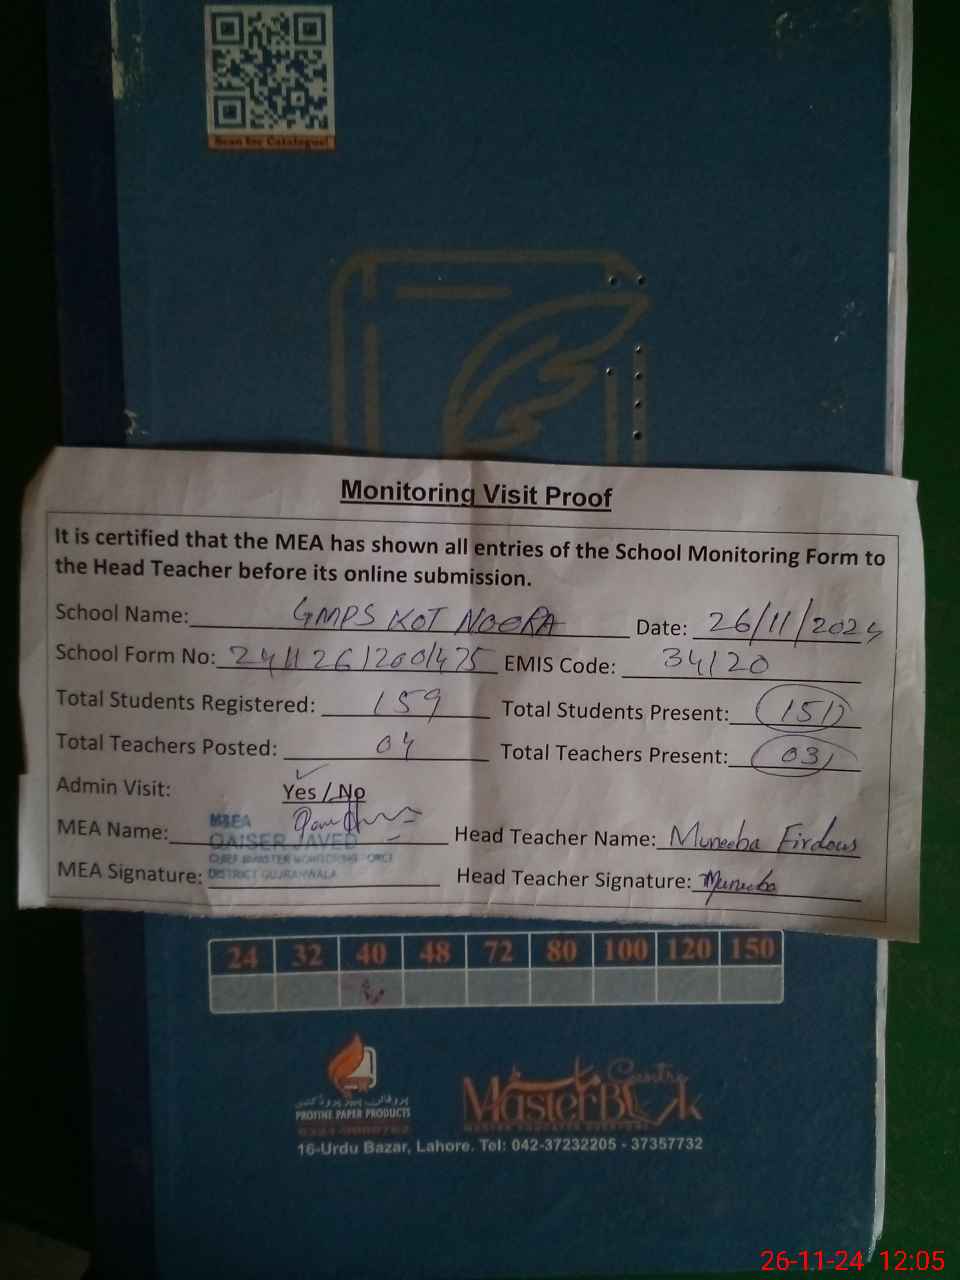 Scan for Catalogue!
Monitoring Visit Proof
It is certified that the MEA has shown all entries of the School Monitoring Form to
the Head Teacher before its online submission.
School Name: GMPS KOT NOERA Date: 26/11/2024
School Form No: EMIS Code: 34120
Total Students Registered: 159 Total Students Present: 151
Total Teachers Posted: 04 Total Teachers Present: 03
Admin Visit: Yes / No
MEA
MEA Name: QAISER JAVED Head Teacher Name: Muneeba Firdous
CHIEF MINISTER MONITORING FORCE
MEA Signature: DISTRICT GUJRANWALA Head Teacher Signature: Muneeba
24 32 40 48 72 80 100 120 150
PROFINE PAPER PRODUCTS
Master Book Centre
16-Urdu Bazar, Lahore. Tel: 042-37232205 - 37357732
26-11-24 12:05